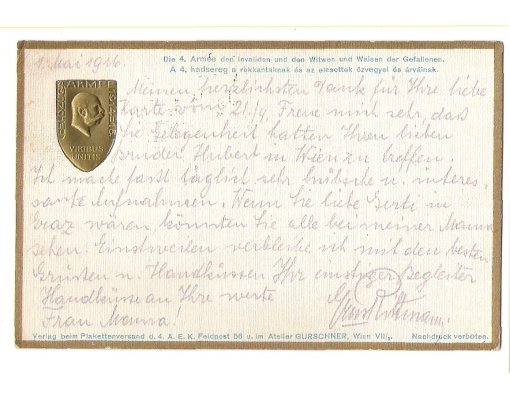 1. Mai 1916.
Die 4. Armee den Invaliden und den Witwen und Waisen der Gefallenen.
A 4. hadsereg a rokkantaknak és az elesettek özvegyei és árváinak.
VIRIBUS
UNITIS
Meinen herzlichsten Dank für Ihre liebe
Karte vom 21./4. Freue mich sehr, daß
Sie Gelegenheit hatten Ihren lieben
Bruder Hubert in Wien zu treffen.
Ich mache fast täglich sehr hübsche u. interes-
sante Aufnahmen. Wenn Sie liebe Gerti in
Graz wären, könnten Sie alle bei meiner Mama
sehen. Einstweilen verbleibe ich mit den besten
Grüßen u. Handküssen Ihr einstiger Begleiter
Handküsse an Ihre werte
Frau Mama!
Verlag beim Plakettenversand d. 4. A. E. K. Feldpost 56 u. im Atelier GURSCHNER, Wien VII/₁. Nachdruck verboten.